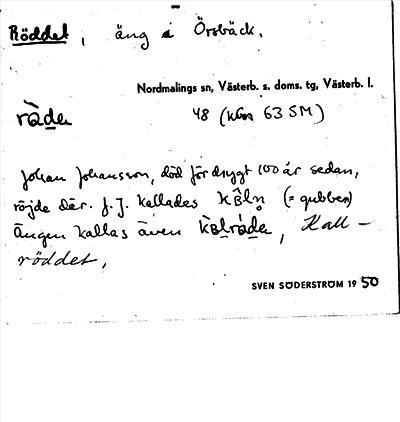 Röddet, äng i Örsbäck.
Nordmalings sn, Västerb. s. doms. tg, Västerb. l.
48 (63 SM)
Johan Johansson, död för drygt 100 år sedan,
röjde där. J. J. kallades (= gubben)
Ängen kallas även Kall-
röddet.
SVEN SÖDERSTRÖM 1950